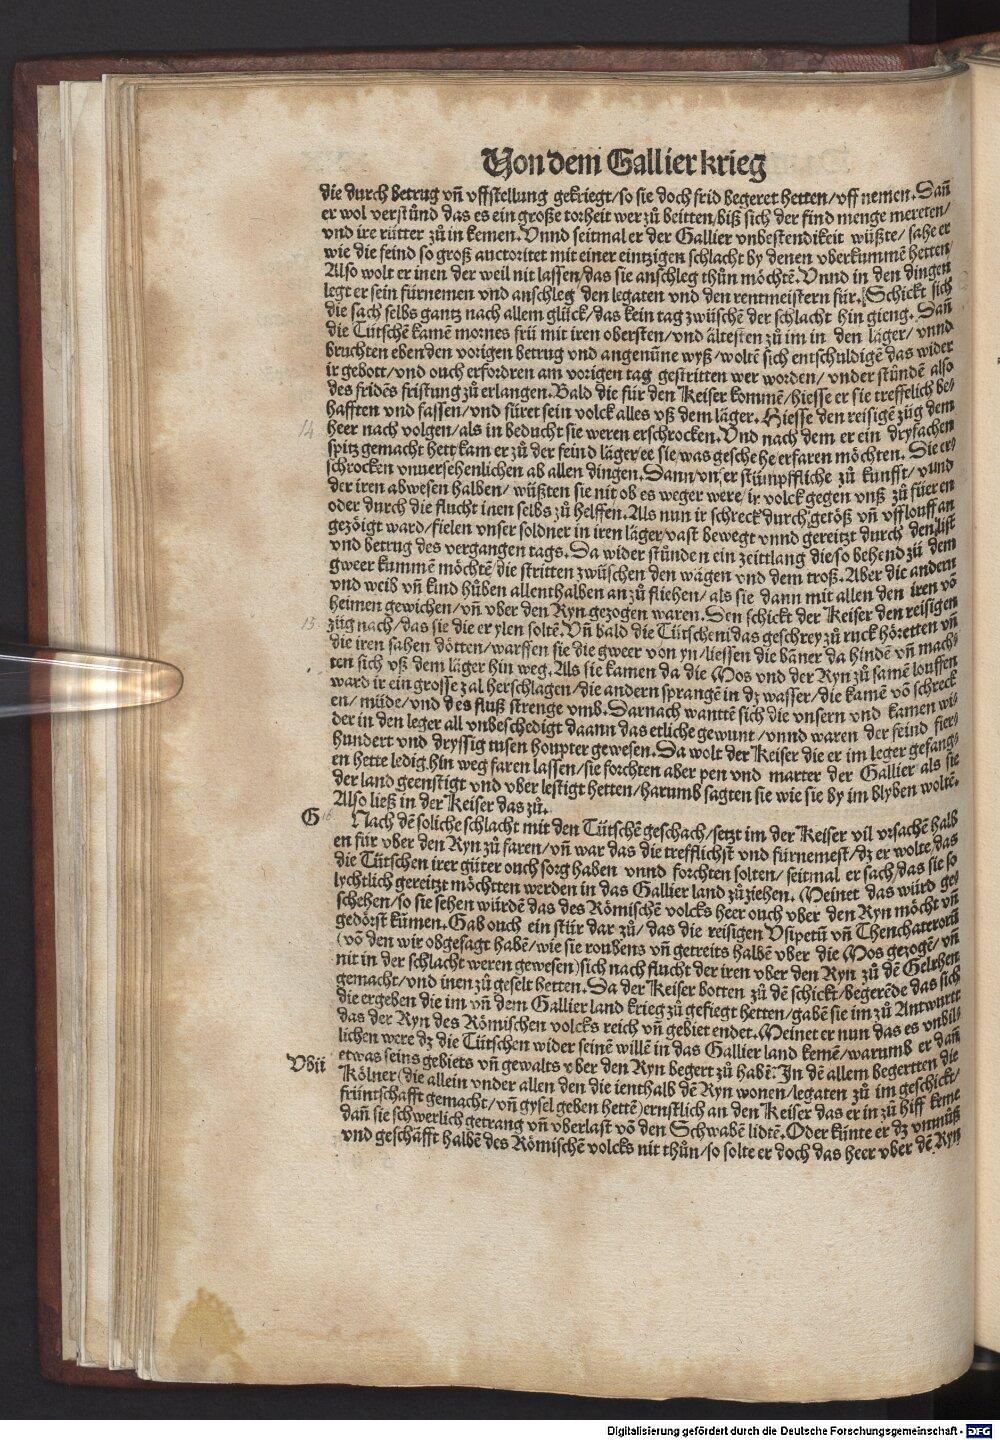 Von dem Gallier krieg
die durch betrug vñ vffstellung gekriegt/so sie doch frid begeret hetten/vff nemen. Dañ
er wol verstůnd das es ein große torheit wer zů beitten/biß sich der find menge mereten/
vnd ire rütter zů in kemen. Vnnd seitmal er der Gallier vnbestendikeit wüßte/ sahe er
wie die feind so groß auctoritet mit einer eintzigen schlacht by denen vberkummē hetten/
Also wolt er inen der weil nit lassen/das sie anschleg thůn möchtē. Vnnd in den dingen
legt er sein fürnemen vnd anschleg den legaten vnd den rentmeistern für. Schickt sich
die sach selbs gantz nach allem glück/das kein tag zwüschē der schlacht hin gieng. Dañ
die Tütschē kamē mornes frü mit iren obersten/vnd ältesten zů im in den läger/ vnnd
bruchten ebenden vorigen betrug vnd angenūne wyß/woltē sich entschuldigē das wider
ir gebott/vnd ouch erfordren am vorigen tag gestritten wer worden/ vnder stůndē also
des fridēs fristung zů erlangen. Bald die für den Keiser kommē/hiesse er sie treffelich be-
hafften vnd fassen/vnd füret sein volck alles vß dem läger. Hiesse den reisigē züg dem
14 heer nach volgen/als in beducht sie weren erschrocken. Vnd nach dem er ein dryfachen
spitz gemacht hett kam er zů der feind läger/ee sie was geschehe erfaren möchten. Sie er-
schrocken vnuersehenlichen ab allen dingen. Dann vn er stümpffliche zů kunfft/ vnnd
der iren abwesen halben/ wüßten sie nit ob es weger were/ ir volck gegen vnß zů füeren
oder durch die flucht inen selbs zů helffen. Als nun ir schreck durch getöß vñ vfflouff an
gezöigt ward/fielen vnser soldner in iren läger/vast bewegt vnnd gereitzt durch den list
vnd betrug des vergangen tags. Da wider stůnden ein zeittlang die/so behend zů dem
gweer kummē möchtē/die stritten zwüschen den wägen vnd dem troß. Aber die andern
vnd weib vñ kind hůben allenthalben an zů fliehen/ als sie dann mit allen den iren vō
heimen gewichen/vñ vber den Ryn gezogen waren. Den schickt der Keiser den reisigen
15 züg nach/das sie die er ylen soltē. Vñ bald die Tütschen/das geschrey zů ruck hörettẽ vñ
die iren sahen dötten/warffen sie die gweer von yn/liessen die bäner da hindē vñ mach-
ten sich vß dem läger hin weg. Als sie kamen da die Mos vnd der Ryn zů samē louffen
ward ir ein grosse zal herschlagen/die andern sprangē in dz wasser/die kamē vō schreck
en/müde/vnd des fluß strenge vmb. Darnach wanttē sich die vnsern vnd kamen wi-
der in den leger all vnbeschedigt daann das etliche gewunt/vnnd waren der feind fier-
hundert vnd dryssig tusen houpter gewesen. Da wolt der Keiser die er im leger gefang-
en hette ledig hin weg faren lassen/sie forchten aber pen vnd marter der Gallier als sie
der land geenstigt vnd vber lestigt hetten/harumb sagten sie wie sie by im blyben woltē.
Also ließ in der Keiser das zů.
G 16. Nach dē soliche schlacht mit den Tütschē geschach/setzt im der Keiser vil vrsachē halb
en für vber den Ryn zů faren/vñ war das die trefflichst vnd fürnemest/dz er wolte/das
die Tütschen irer güter ouch sorg haben vnnd forchten solten/ seitmal er sach/das sie so
lychtlich gereitzt möchtten werden in das Gallier land zůziehen. Meinet das würd ge-
schehen/so sie sehen würdē das des Römischē volcks heer ouch vber den Ryn möcht vñ
gedörst kūmen. Gab ouch ein stür dar zů/ das die reisigen Vsipetū vñ Thenchaterorū
(vō den wir obgesagt habē/wie sie roubens vñ getreits halbē vber die Mos gezogē/ vñ
nit in der schlacht weren gewesen)sich nach flucht der iren vber den Ryn zů dē Gelrhen
gemacht/vnd inen zů geselt hetten. Da der Keiser botten zů dē schickt/begerēde das sich
die ergeben die im vñ dem Gallier land krieg zů gefiegt hetten/gabē sie im zů Antwurtt
das der Ryn des Römischen volcks reich vñ gebiet endet. Meinet er nun das es vnbil-
lichen were dz die Tütschen wider seinē willē in das Gallier land kemē/warumb er dañ
Vbij etwas seins gebiets vñ gewalts vber den Ryn begert zů habē. In dē allem begertten die
Kölner (die allein vnder allen den die ienthalb dē Ryn wonen/legaten zů im geschickt/
früntschafft gemacht/vñ gysel geben hettē)ernstlich an den Keiser das er in zů hilff keme
dañ sie schwerlich getrang vñ vberlast vō den Schwabē lidtē. Oder künte er dz vnmůß
vnd geschäfft halbē des Römischē volcks nit thůn/so solte er doch das heer vber dē Ryn
Digitalisierung gefördert durch die Deutsche Forschungsgemeinschaft - DFG